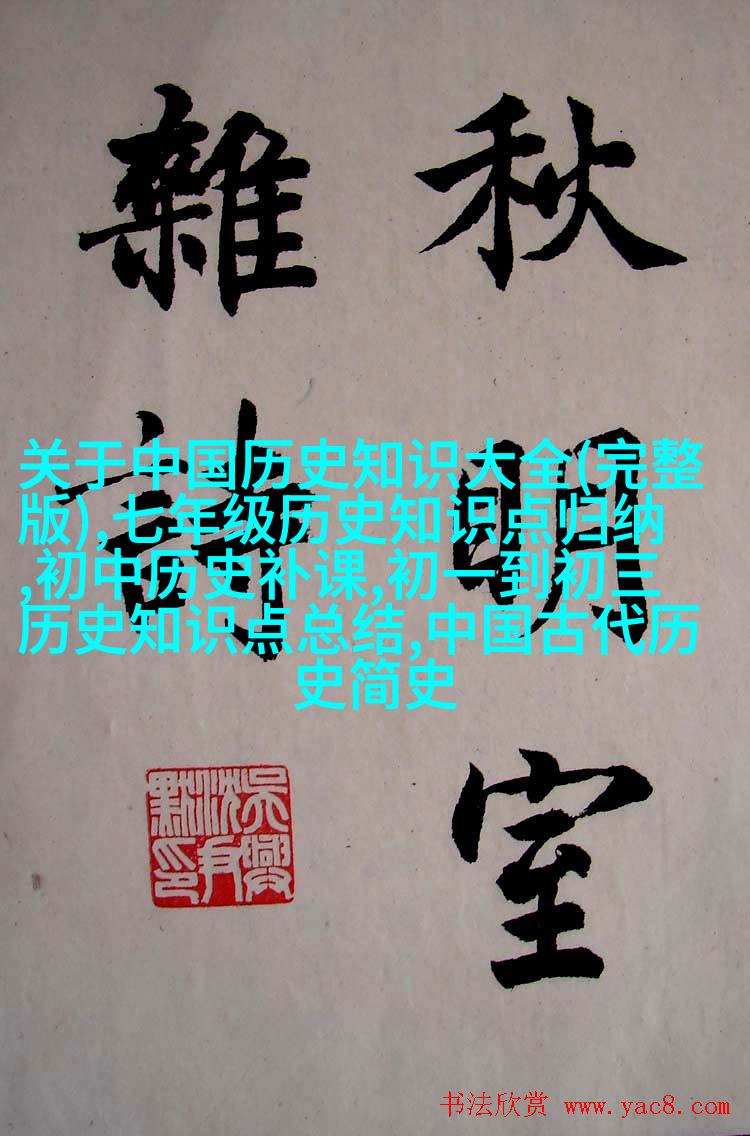 秋明室
雜詩
关于中国历史知识大全(完整
版),七年级历史知识点归纳
,初中历史补课,初一到初三
历史知识点总结,中国古代历
史简史
吳興
沈尹
默印
书法欣赏 www.yac8.com